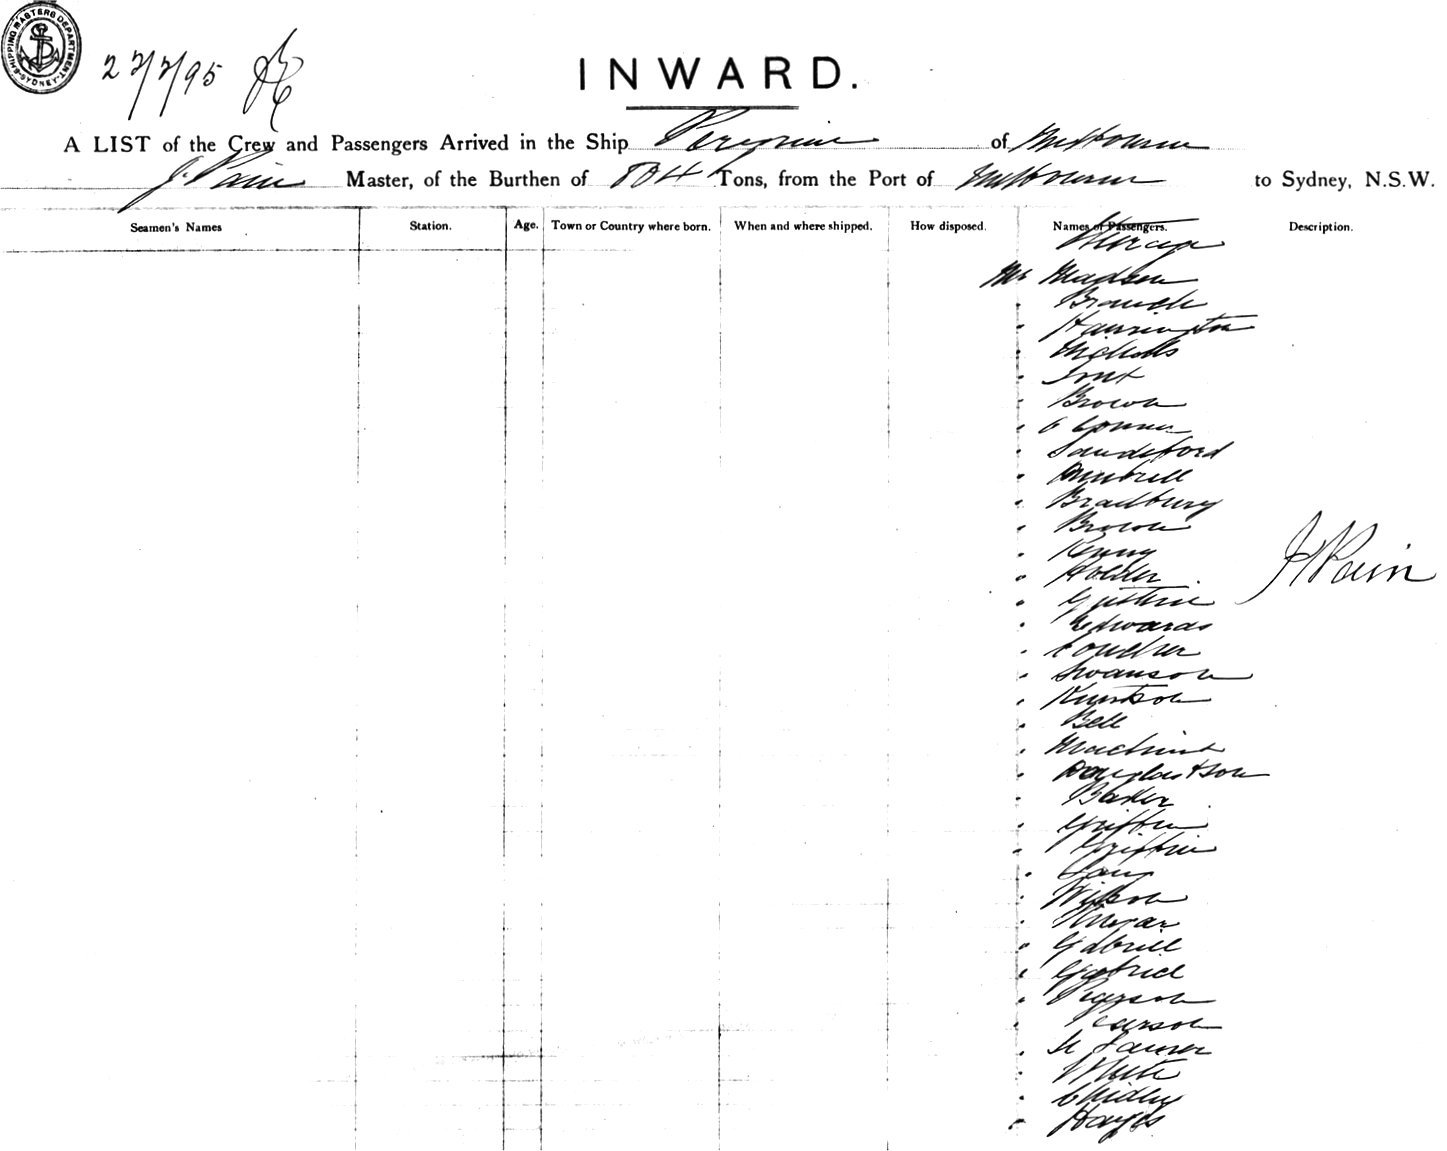 SHIPPING MASTERS DEPARTMENT SYDNEY
27/7/95
INWARD.
A LIST of the Crew and Passengers Arrived in the Ship Peregrine of Melbourne
J. Pain Master, of the Burthen of 804 Tons, from the Port of Melbourne to Sydney, N.S.W.
Seamen's Names Station. Age. Town or Country where born. When and where shipped. How disposed. Names of Passengers. Description.
Steerage
Mr Madsen
Harrington
Nicholls
Brown
O Connor
Sandeford
Bradbury
Brown
Kenny
Holder
Guthrie
Edwards
Swanson
Knutson
Bell
Douglas & Son
Baker
Griffin
Griffin
Wilson
Gabriel
Gabriel
Pearson
Pearson
White
Chidley
Hayes
J Pain